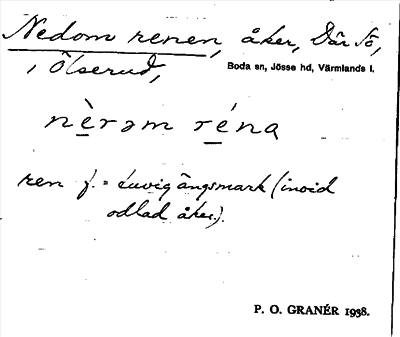 Nedom renen, åker, Där Sö,
i Ölserud, Boda sn, Jösse hd, Värmlands l.
nèrəm réna
ren f. = luvig ängsmark (invid
odlad åker).
P. O. GRANÉR 1938.